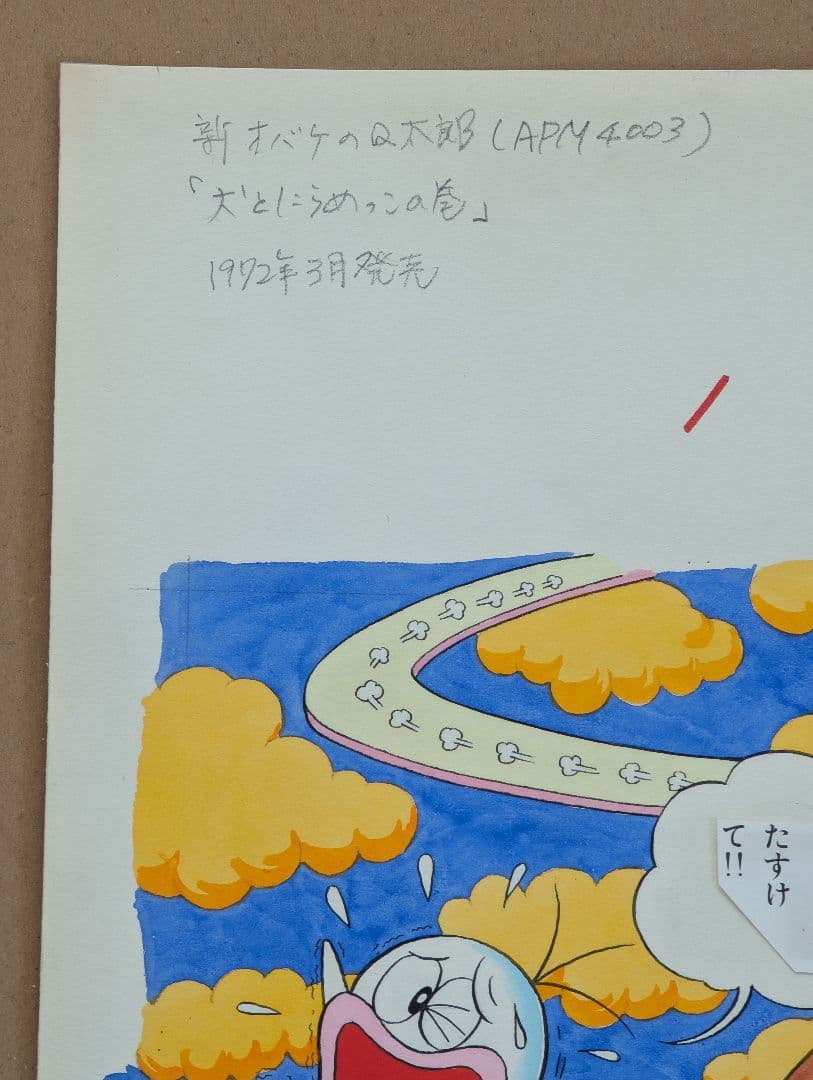 新オバケのQ太郎(APM4003)
「犬とにらめっこの巻」
1972年3月発売
たすけ
て!!